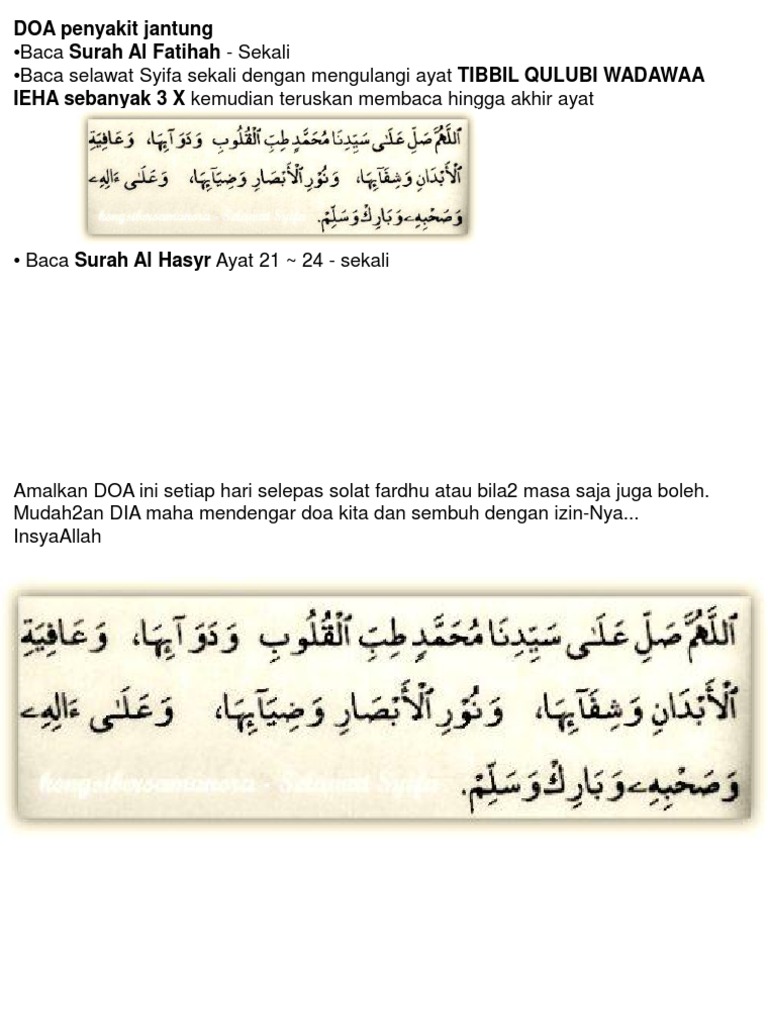 DOA penyakit jantung
•Baca Surah Al Fatihah - Sekali
•Baca selawat Syifa sekali dengan mengulangi ayat TIBBIL QULUBI WADAWAA
IEHA sebanyak 3 X kemudian teruskan membaca hingga akhir ayat
ٱللَّهُمَّ صَلِّ عَلَىٰ سَيِّدِنَا مُحَمَّدٍ طِبِّ ٱلْقُلُوبِ وَدَوَآئِهَا، وَعَافِيَةِ
ٱلْأَبْدَانِ وَشِفَآئِهَا، وَنُوْرِ ٱلْأَبْصَارِ وَضِيَآئِهَا، وَعَلَىٰ ءَالِهِۦ
وَصَحْبِهِۦ وَبَارِكْ وَسَلِّمْ.
• Baca Surah Al Hasyr Ayat 21 ~ 24 - sekali
Amalkan DOA ini setiap hari selepas solat fardhu atau bila2 masa saja juga boleh.
Mudah2an DIA maha mendengar doa kita dan sembuh dengan izin-Nya...
InsyaAllah
ٱللَّهُمَّ صَلِّ عَلَىٰ سَيِّدِنَا مُحَمَّدٍ طِبِّ ٱلْقُلُوبِ وَدَوَآئِهَا، وَعَافِيَةِ
ٱلْأَبْدَانِ وَشِفَآئِهَا، وَنُوْرِ ٱلْأَبْصَارِ وَضِيَآئِهَا، وَعَلَىٰ ءَالِهِۦ
وَصَحْبِهِۦ وَبَارِكْ وَسَلِّمْ.